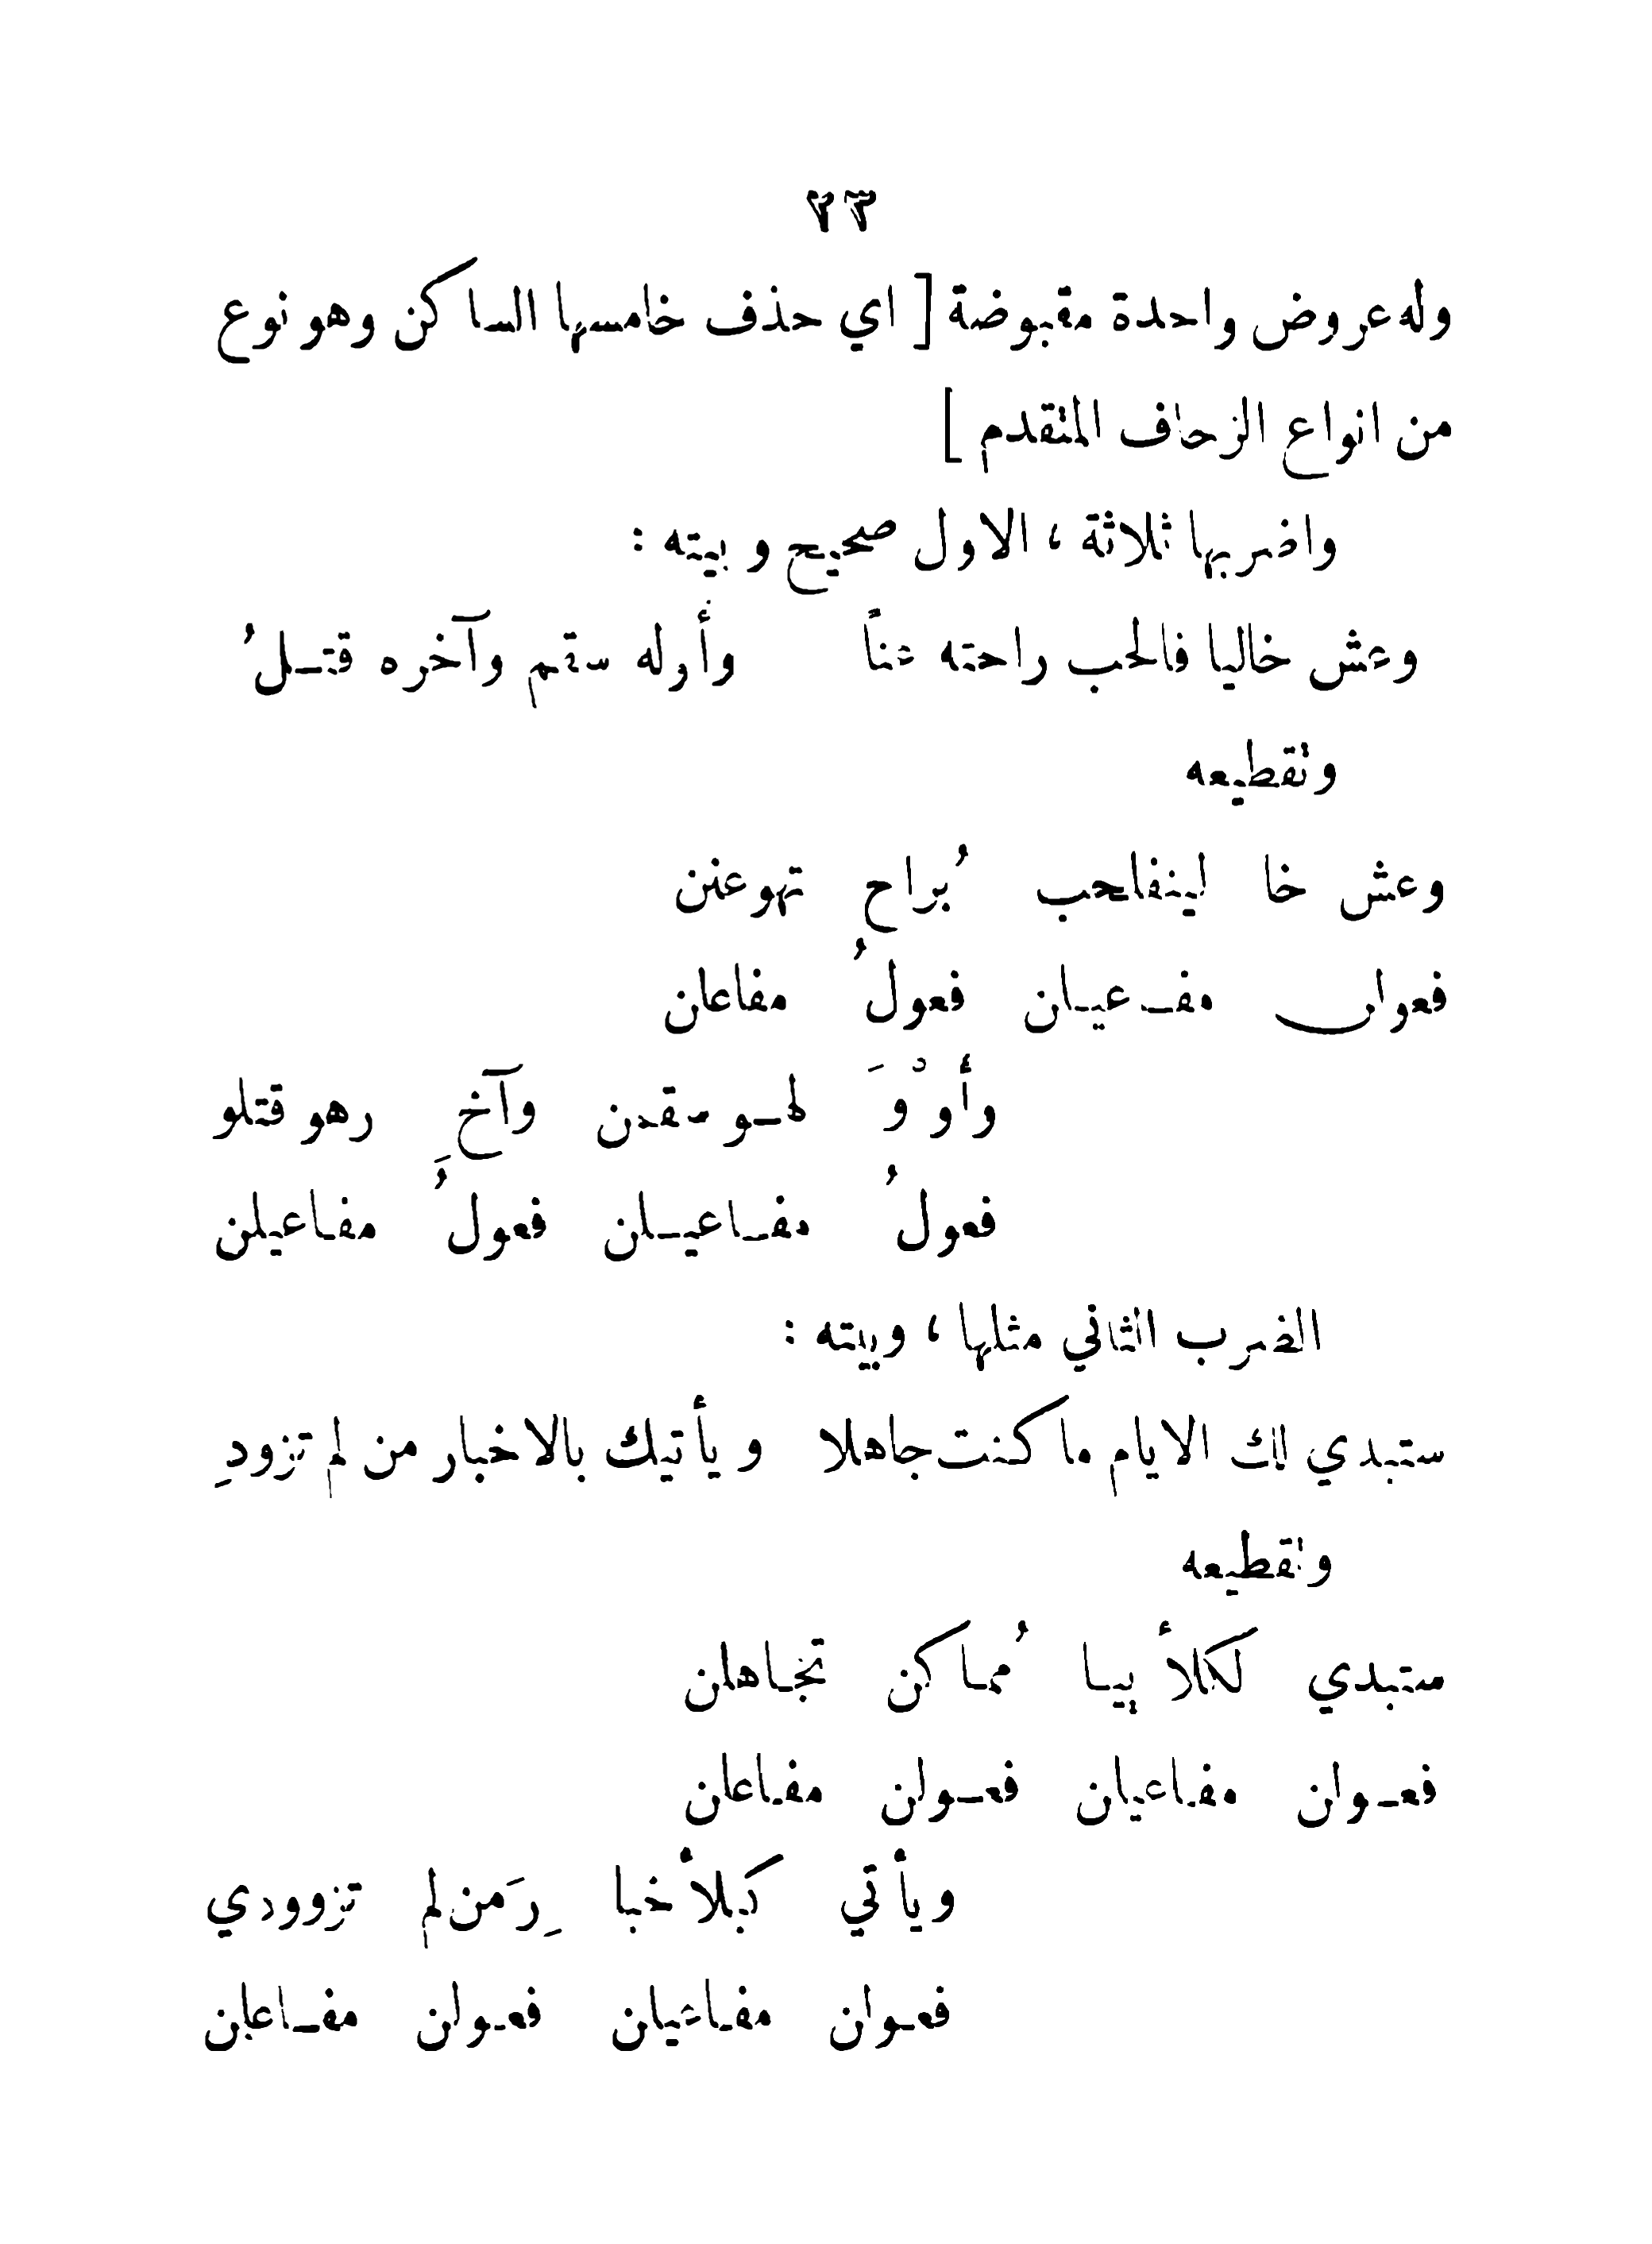 ٢٣
وله عروض واحدة مقبوضة [ اي حذف خامسها الساكن وهو نوع
من انواع الزحاف المتقدم ]
واضربها ثلاثة ، الاول صحيح وبيته :
وعش خاليا فالحب راحته عناً وأوله سقم وآخره قتـلُ
وتقطيعه
وعش خا لينفلحب بُراح تهوعنن
فعولن مفـاعيـلن فعولُ مفاعلن
وأوْوَ لهـو سقمن وآخِ رهو قتلو
فعولُ مفـاعيـلن فعولُ مفـاعيلن
الضرب الثاني مثلها ، وبيته :
ستبدي لك الايام ما كنت جاهلا ويأتيك بالاخبار من لم تزودِ
وتقطيعه
ستبدي لكلأييـا مُمـاكن تجـاهلن
فعـولن مفـاعيلن فعـولن مفـاعلن
ويأتي كبلأخبا رِمَن لم تزوودي
فعـولن مفـاعيلن فعـولن مفـاعلن